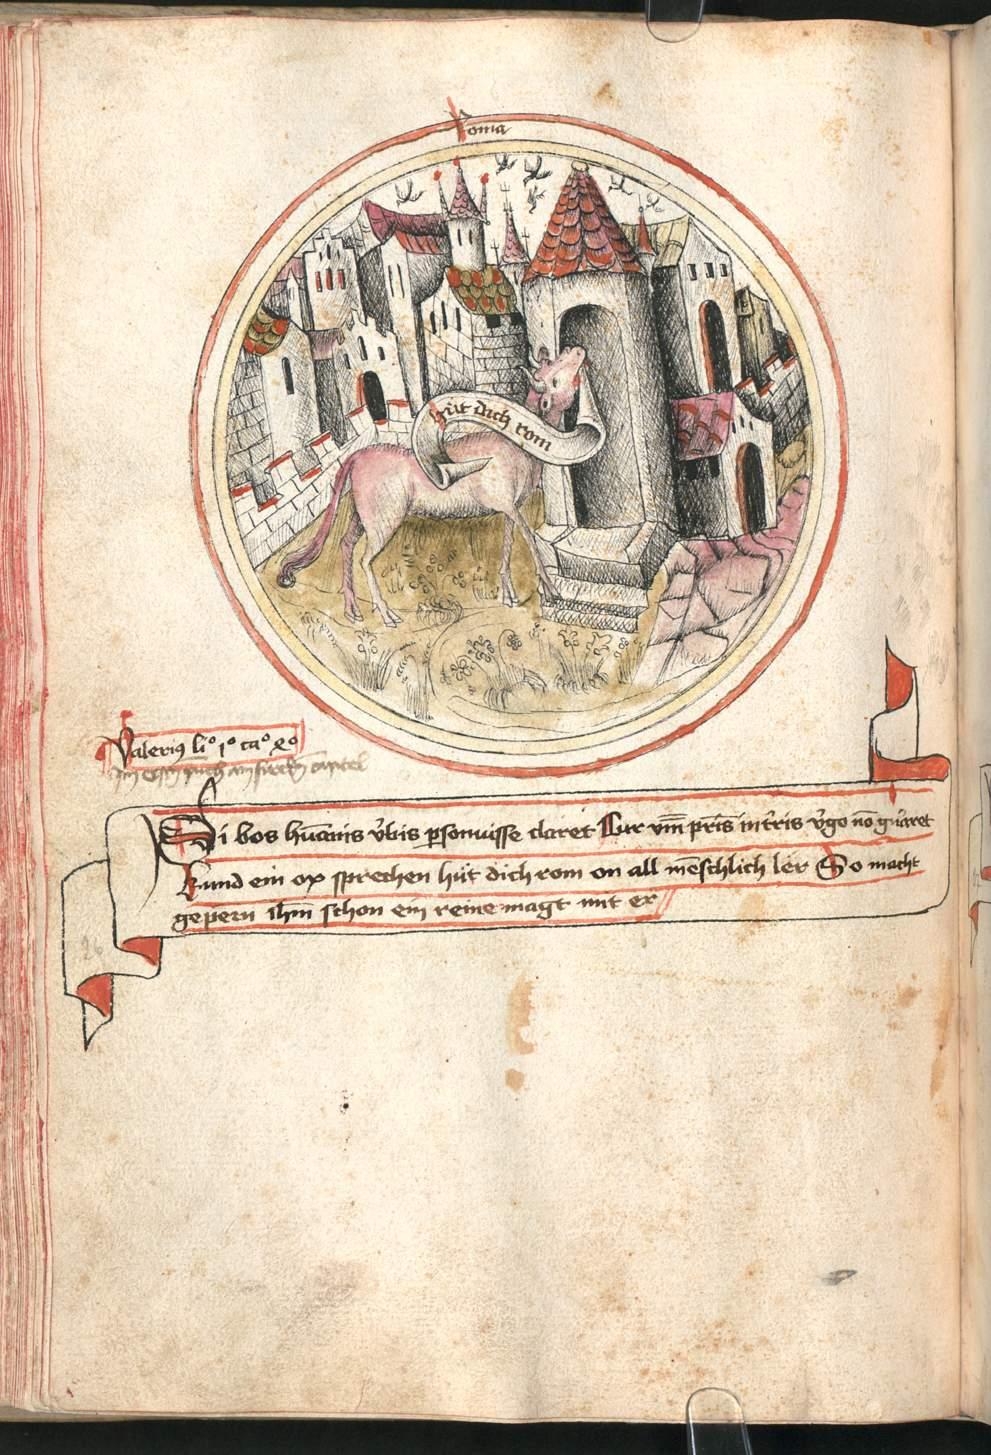 Roma
hüt dich rom
Valeriꝰ li° i° ca° x°
Im capitel
Si bos hūanis v̄bis ꝑsonuisse claret Cur vim pr̄is int̄ris v̄go nō gn̄aret
Kund ein ox sprechen hüt dich rom on all mēschlich ler So macht
gepern ihm̄ schon ein reine magt mit er
26